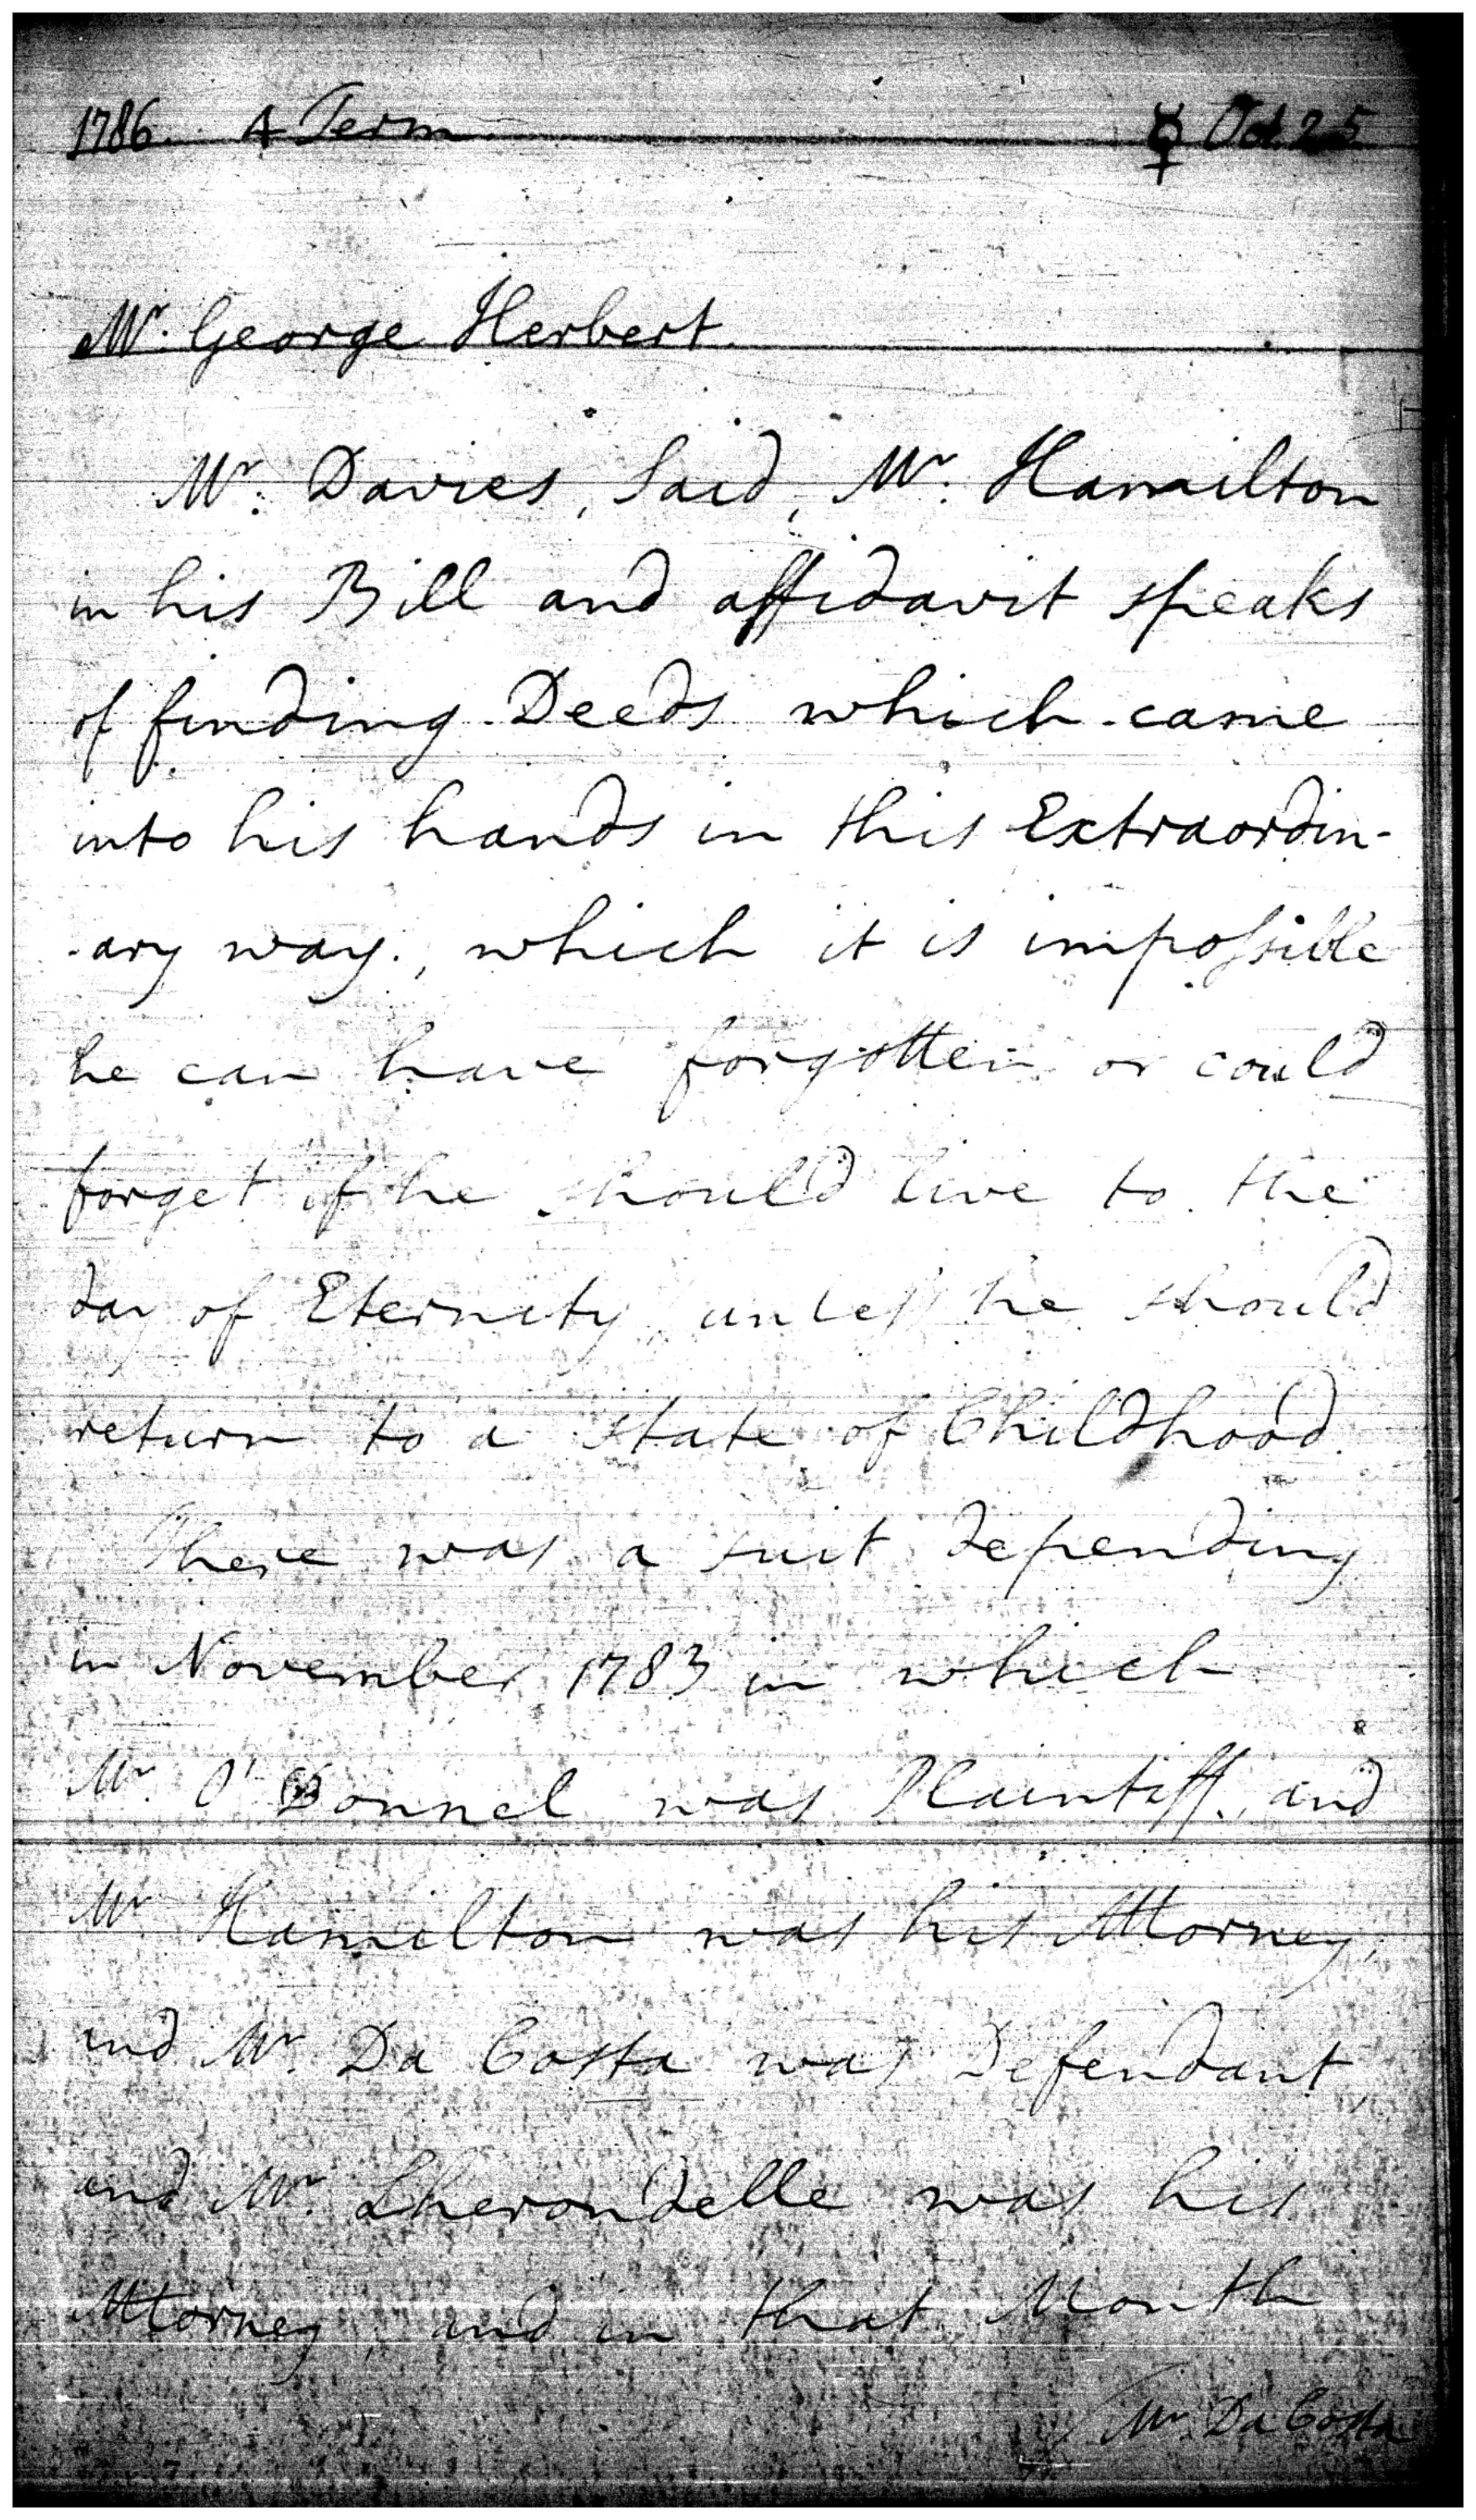 1786. 4 Term ☿ Oct. 25
Mr. George Herbert.
Mr. Davies, said, Mr. Hamilton
in his Bill and affidavit speaks
of finding Deeds which came
into his hands in this Extraordin-
-ary way, which it is impoſsible
he can have forgotten or could
forget if he should live to the
day of Eternity, unleſs he should
return to a state of Childhood.
There was a suit depending
in November 1783 in which
Mr. O'Donnel was Plaintiff, and
Mr Hamilton was his Attorney,
and Mr. Da Costa was Defendant,
and Mr. Lherondelle was his
Attorney, and in that Month
Mr. Da Costa